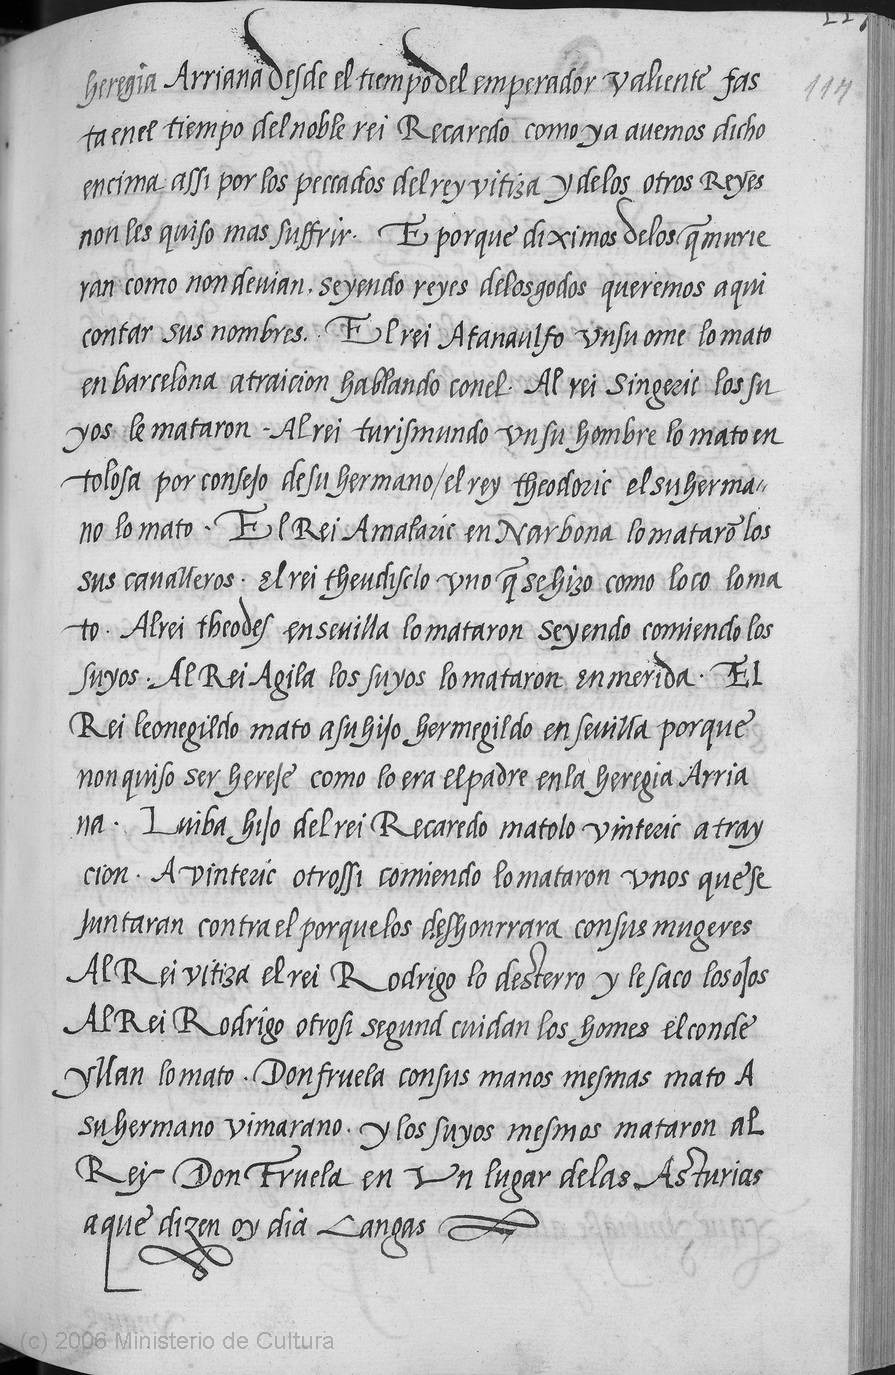 114
heregia Arriana desde el tiempo del emperador valiente fas
ta en el tiempo del noble rei Recaredo como ya auemos dicho
encima assi por los peccados del rey vitiza y de los otros Reyes
non les quiso mas suffrir. E porque diximos de los q̃ murie
ran como non deuian, seyendo reyes de los godos queremos aqui
contar sus nombres. El rei Atanaulfo vn su ome lo mato
en barcelona a traicion hablando con el. Al rei Singeric los su
yos le mataron - Al rei turismundo vn su hombre lo mato en
tolosa por consejo de su hermano/ el rey theodoric el su herma"
no lo mato. El Rei Amalaric en Narbona lo matarõ los
sus caualleros. El rei theudisclo vno q̃ se hizo como loco lo ma
to. Al rei theodes en seuilla lo mataron seyendo comiendo los
suyos. Al Rei Agila los suyos lo mataron en merida. El
Rei leonegildo mato a su hijo hermegildo en seuilla porque
non quiso ser hereje como lo era el padre en la heregia Arria
na. Luiba hijo del rei Recaredo matolo vinteric a tray
cion. A vinteric otrossi comiendo lo mataron vnos que se
juntaran contra el porque los deshonrrara con sus mugeres
Al Rei vitiza el rei Rodrigo lo desterro y le saco los ojos
Al Rei Rodrigo otrosi segund cuidan los homes el conde
yllan lo mato. Don fruela con sus manos mesmas mato A
su hermano vimarano. y los suyos mesmos mataron al
Rey Don Fruela en Vn lugar de las Asturias
a que dizen oy dia Cangas
(c) 2006 Ministerio de Cultura